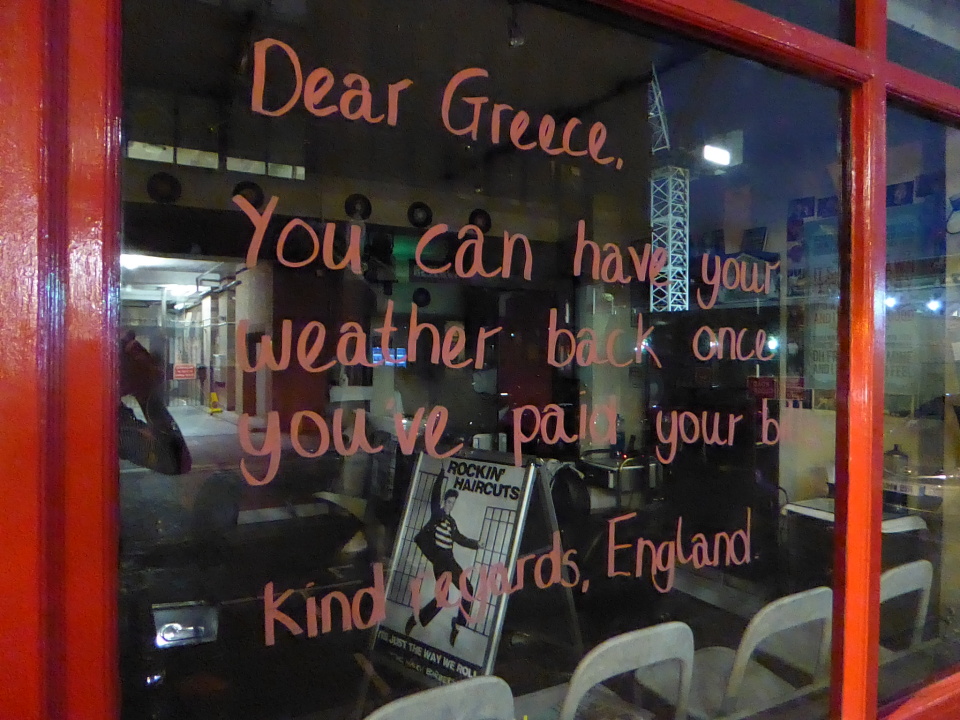 Dear Greece,
You can have your
weather back once
you've paid your
Kind regards, England.
ROCKIN'
HAIRCUTS
JUST THE WAY WE ROLL